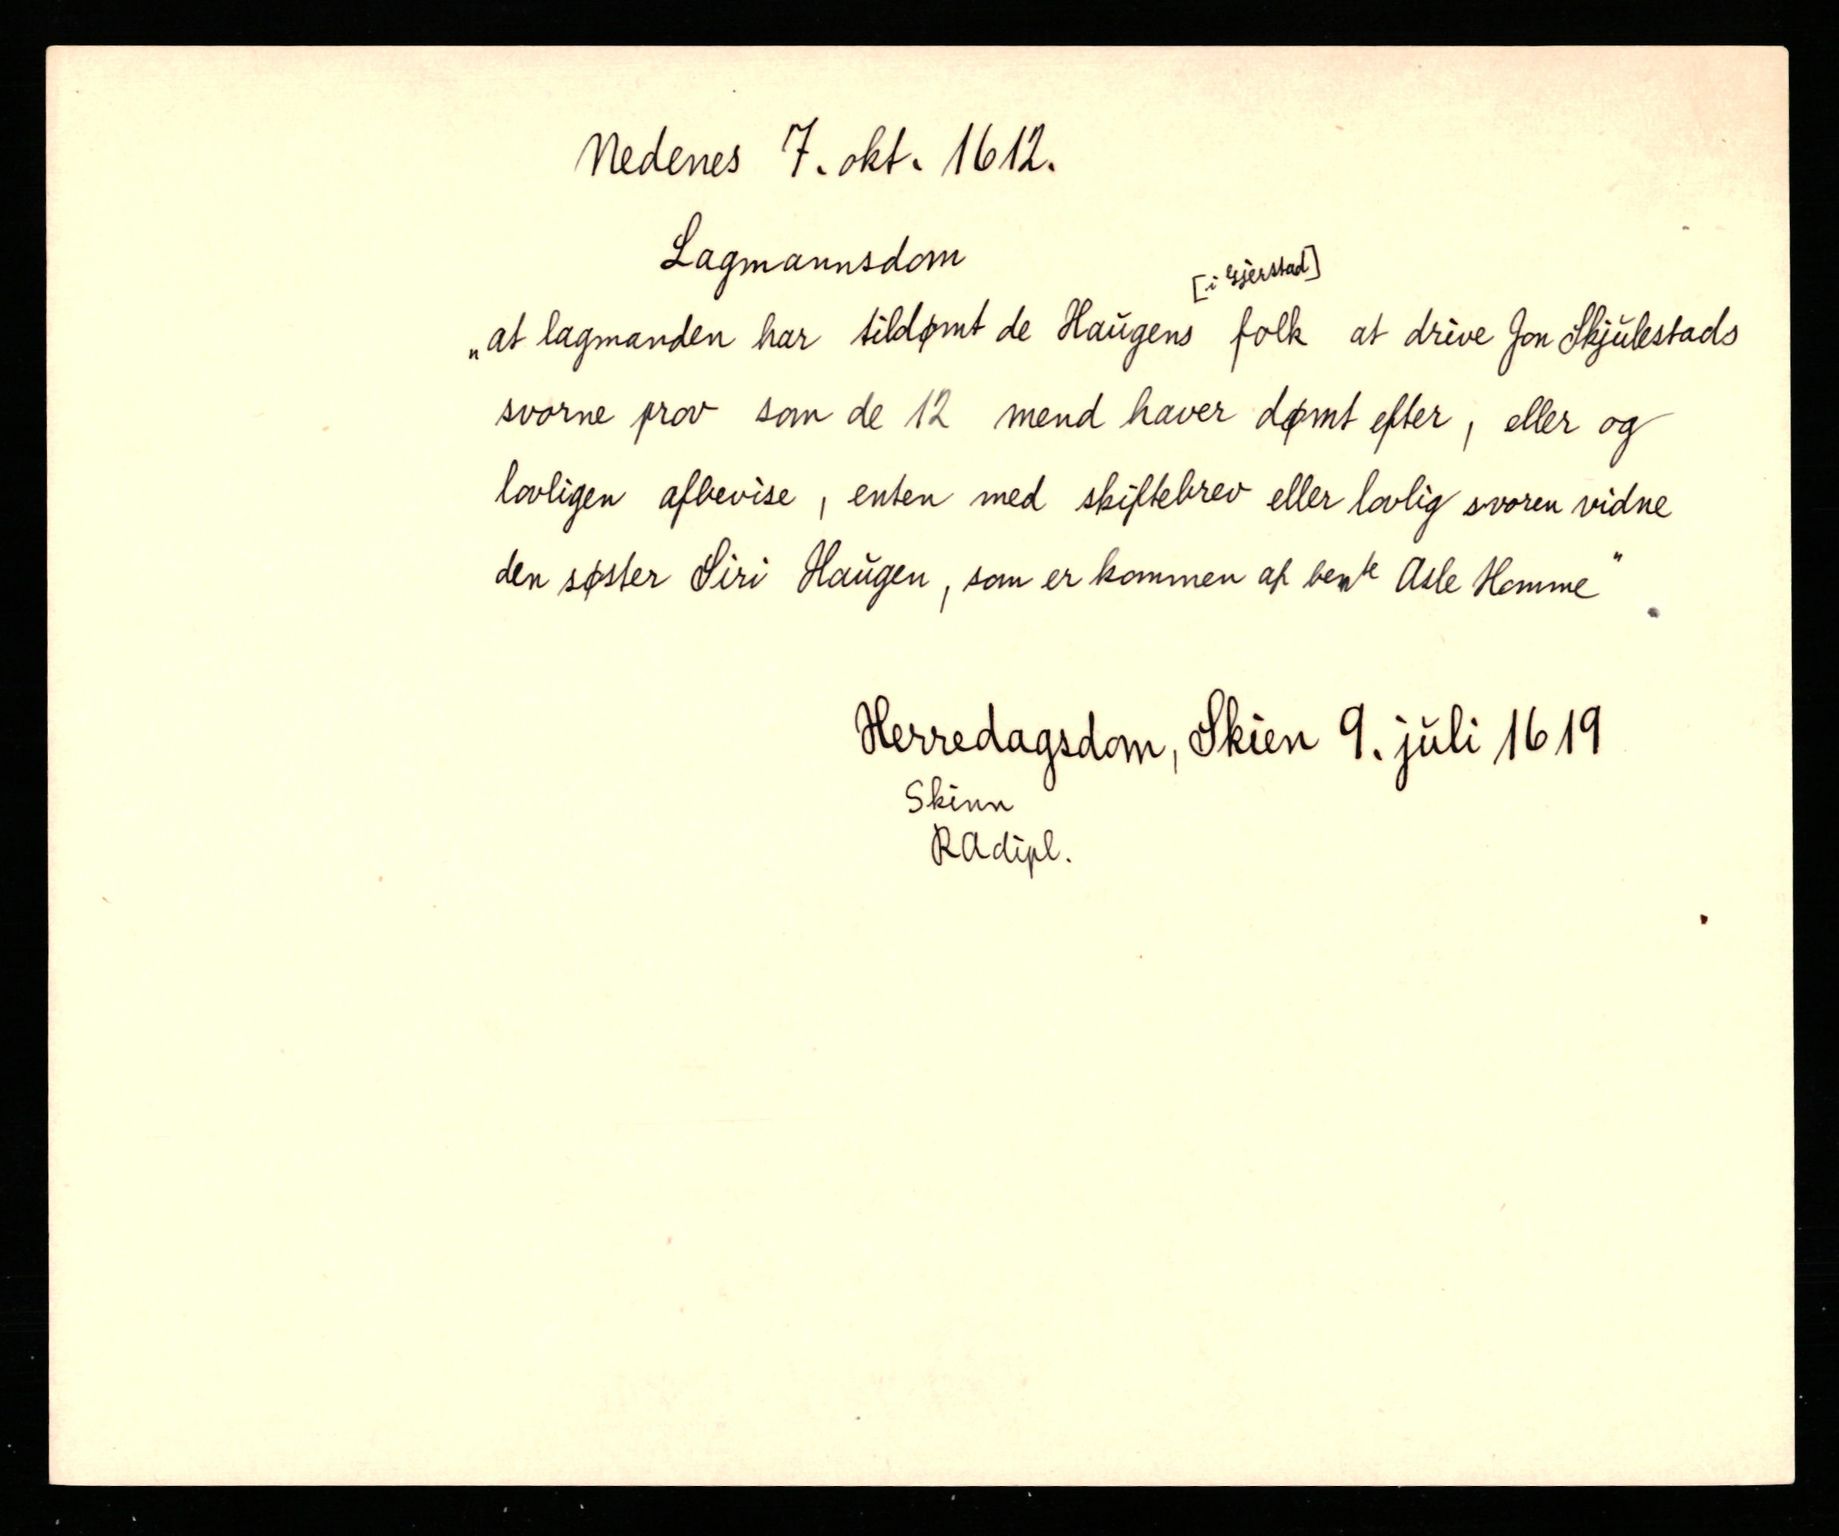 Nedenes 7. okt. 1612.
Lagmannsdom
[i Gjerstad]
„at lagmanden har tildømt de Haugens folk at drive Jon Skjulestads
svorne prov som de 12 mend haver dømt efter, eller og
lovligen afbevise, enten med skiftebrev eller lovlig svoren vidne
den søster Siri Haugen, som er kommen af bemte Asle Homme"
Herredagsdom, Skien 9. juli 1619
Skinn
RA dipl.